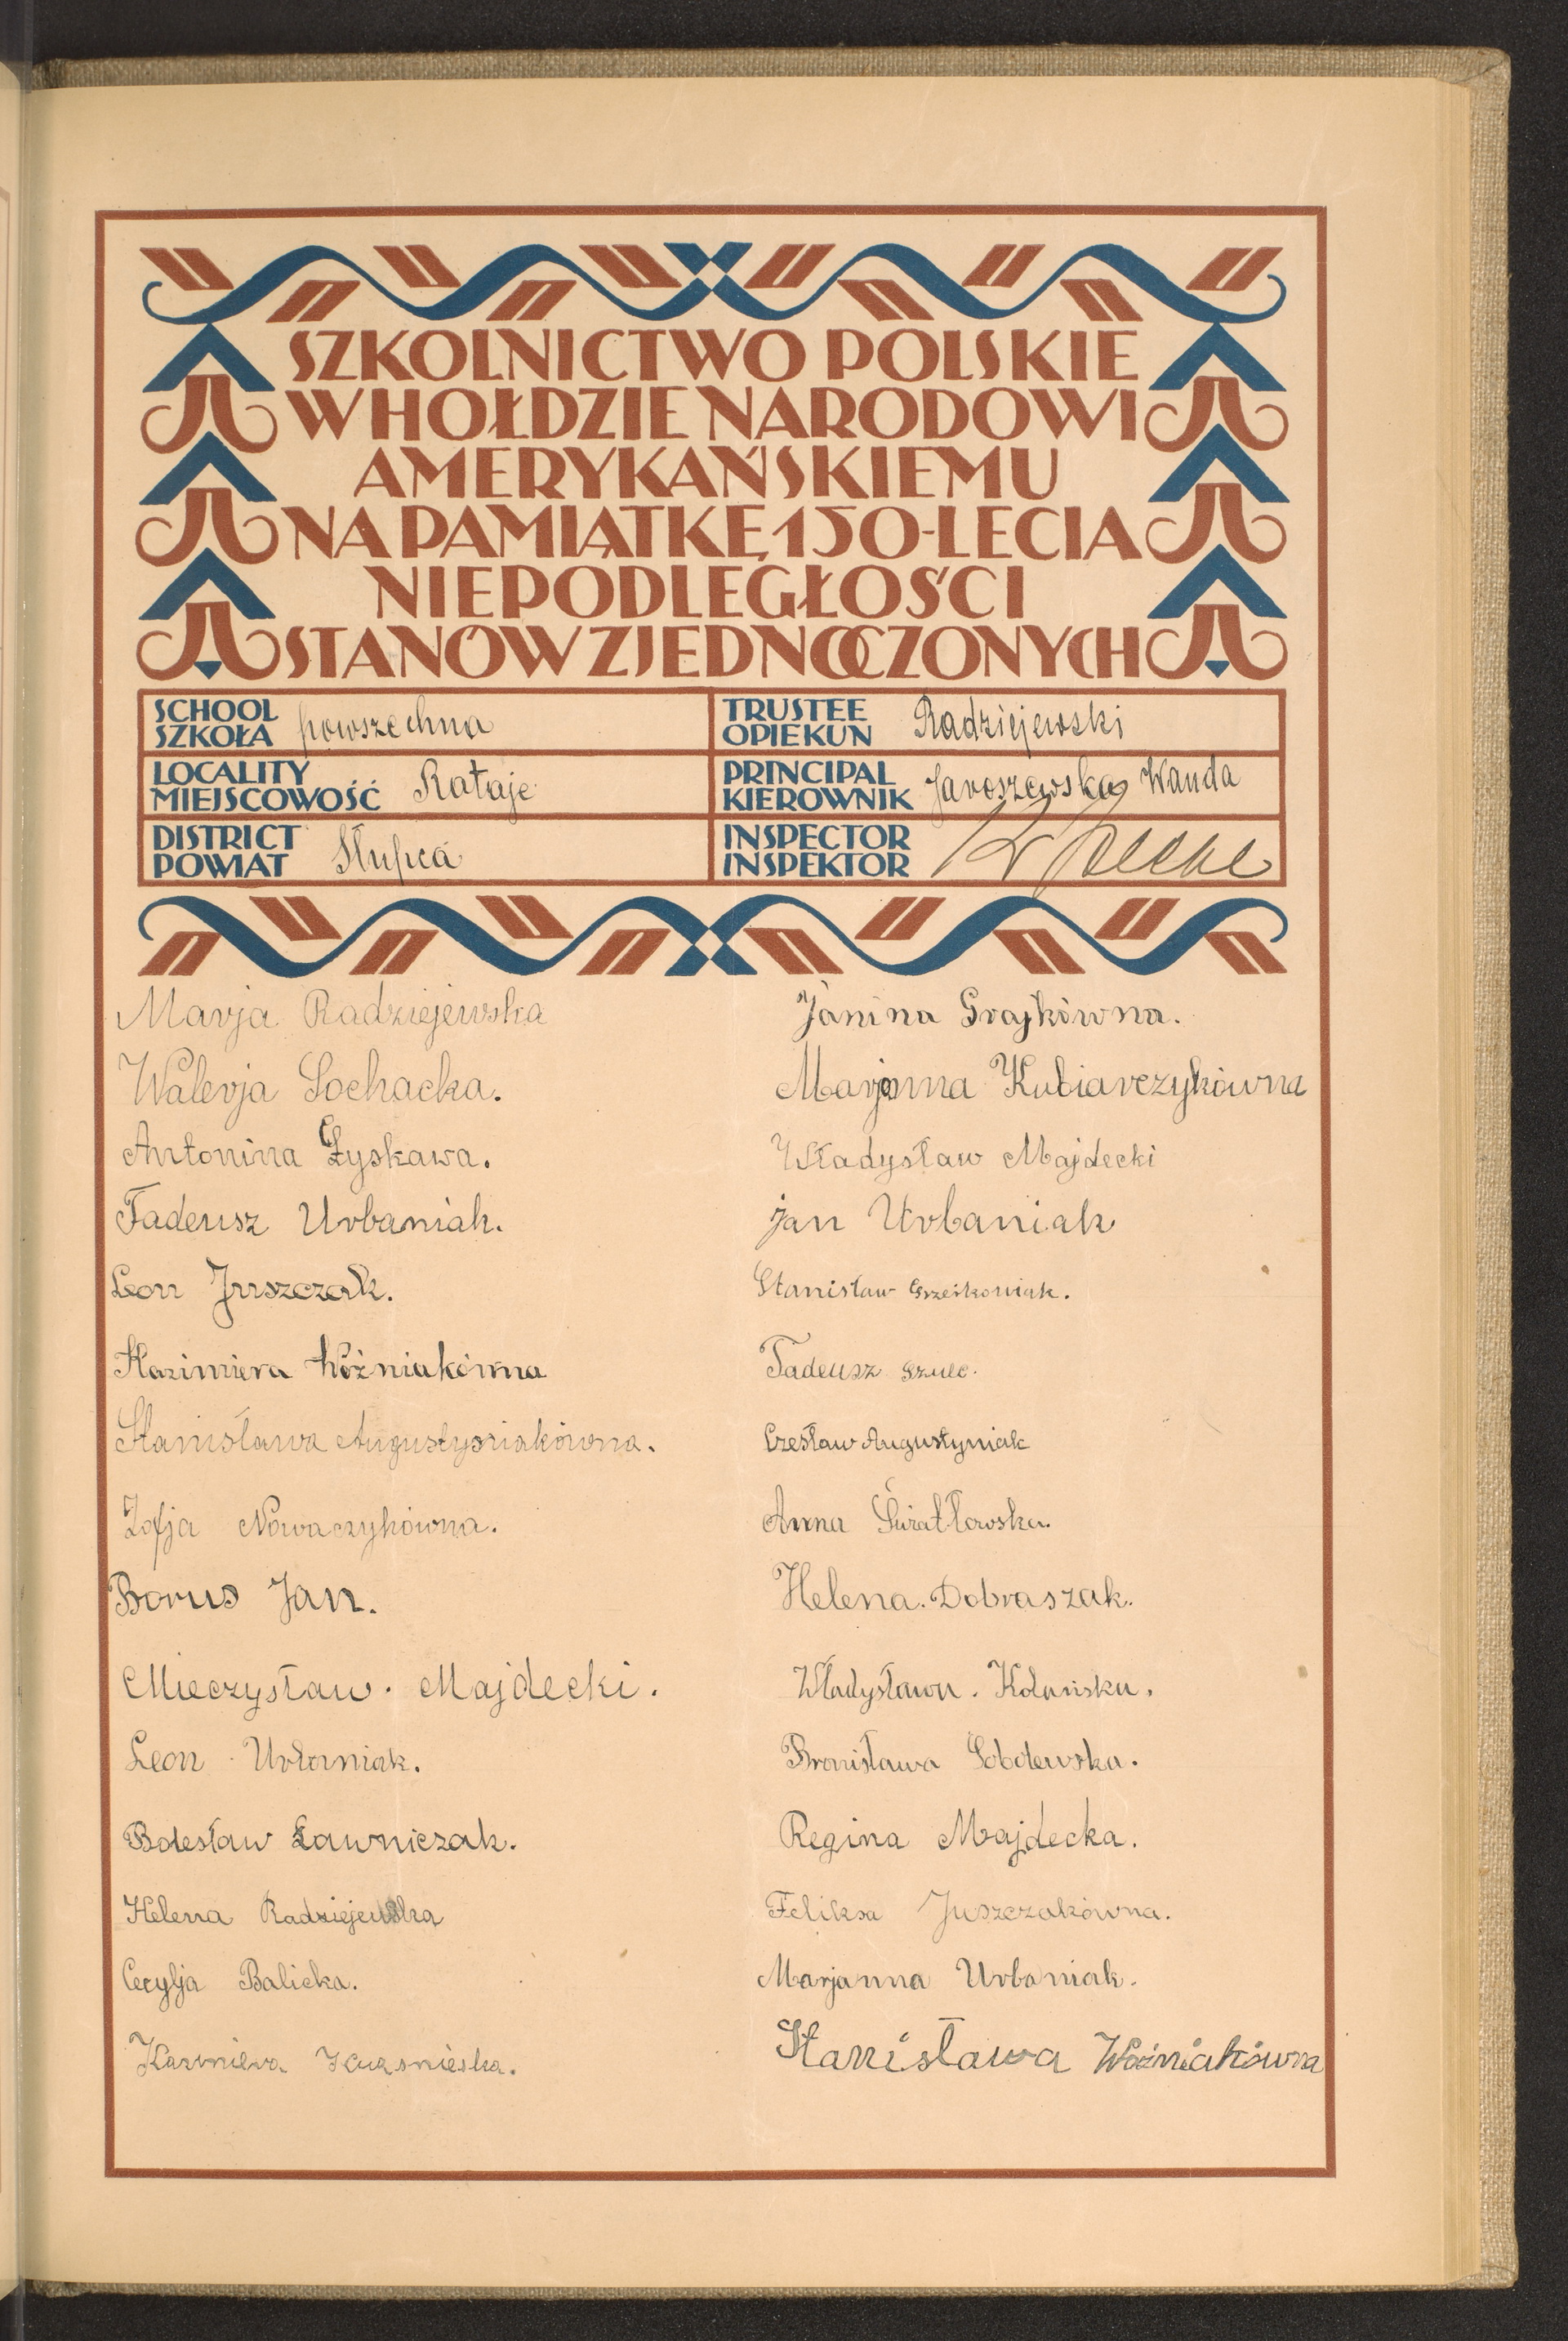 SZKOLNICTWO POLSKIE
W HOŁDZIE NARODOWI
AMERYKAŃSKIEMU
NA PAMIĄTKĘ 150-LECIA
NIEPODLEGŁOŚCI
STANÓW ZJEDNOCZONYCH
SCHOOL
SZKOŁA powszechna
TRUSTEE
OPIEKUN Radziejewski
LOCALITY
MIEJSCOWOŚĆ Rataje
PRINCIPAL
KIEROWNIK Jaroszewska Wanda
DISTRICT
POWIAT Słupca
INSPECTOR
INSPEKTOR
Marja Radziejewska
Walerja Sochacka.
Antonina Łyskawa.
Tadeusz Urbaniak.
Leon Juszczak.
Kazimiera Woźniakówna
Stanisława Augustyniakówna.
Zofja Nowaczykówna.
Borus Jan.
Mieczysław. Majdecki.
Leon Urbaniak.
Bolesław Ławniczak.
Helena Radziejewska
Cecylja Balicka.
Kazimiera
Janina Grajkówna.
Marjanna Kubiarczykówna
Władysław Majdecki
Jan Urbaniak
Stanisław Grześkowiak.
Tadeusz Szulc.
Czesław Augustyniak
Anna Światłowska.
Helena. Dobraszak.
Władysława. Kolańska.
Bronisława Sobolewska.
Regina Majdecka.
Feliksa Juszczakówna.
Marjanna Urbaniak.
Stanisława Woźniakówna